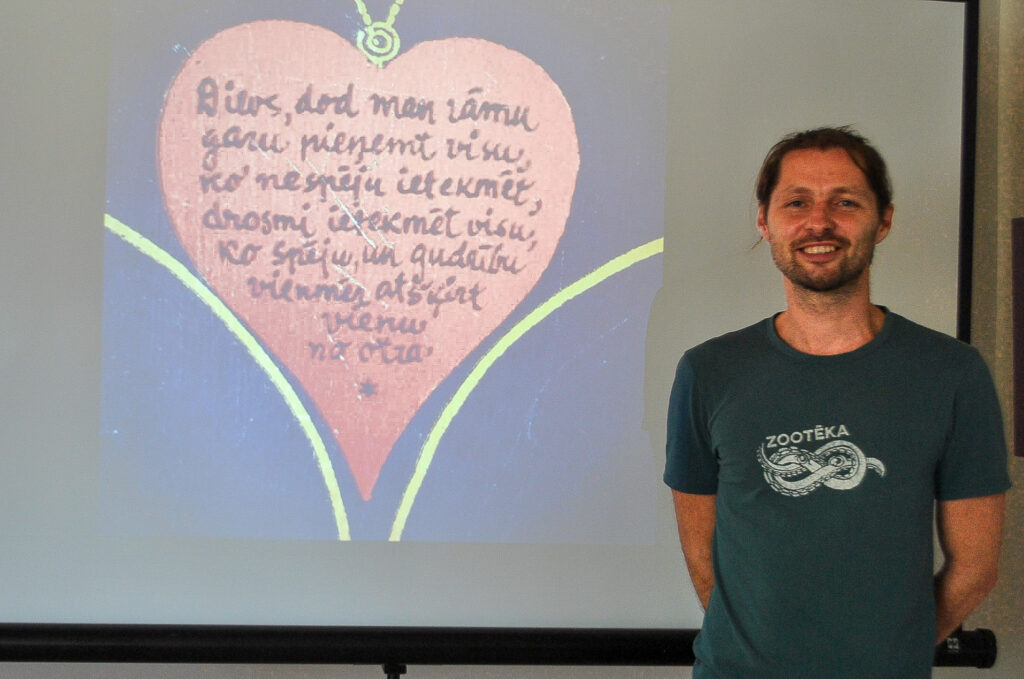 Dievs, dod man rāmu
garu pieņemt visu,
ko nespēju ietekmēt,
drosmi ietekmēt visu,
ko spēju, un gudrību
vienmēr atšķirt
vienu
no otra.
ZOOTĒKA